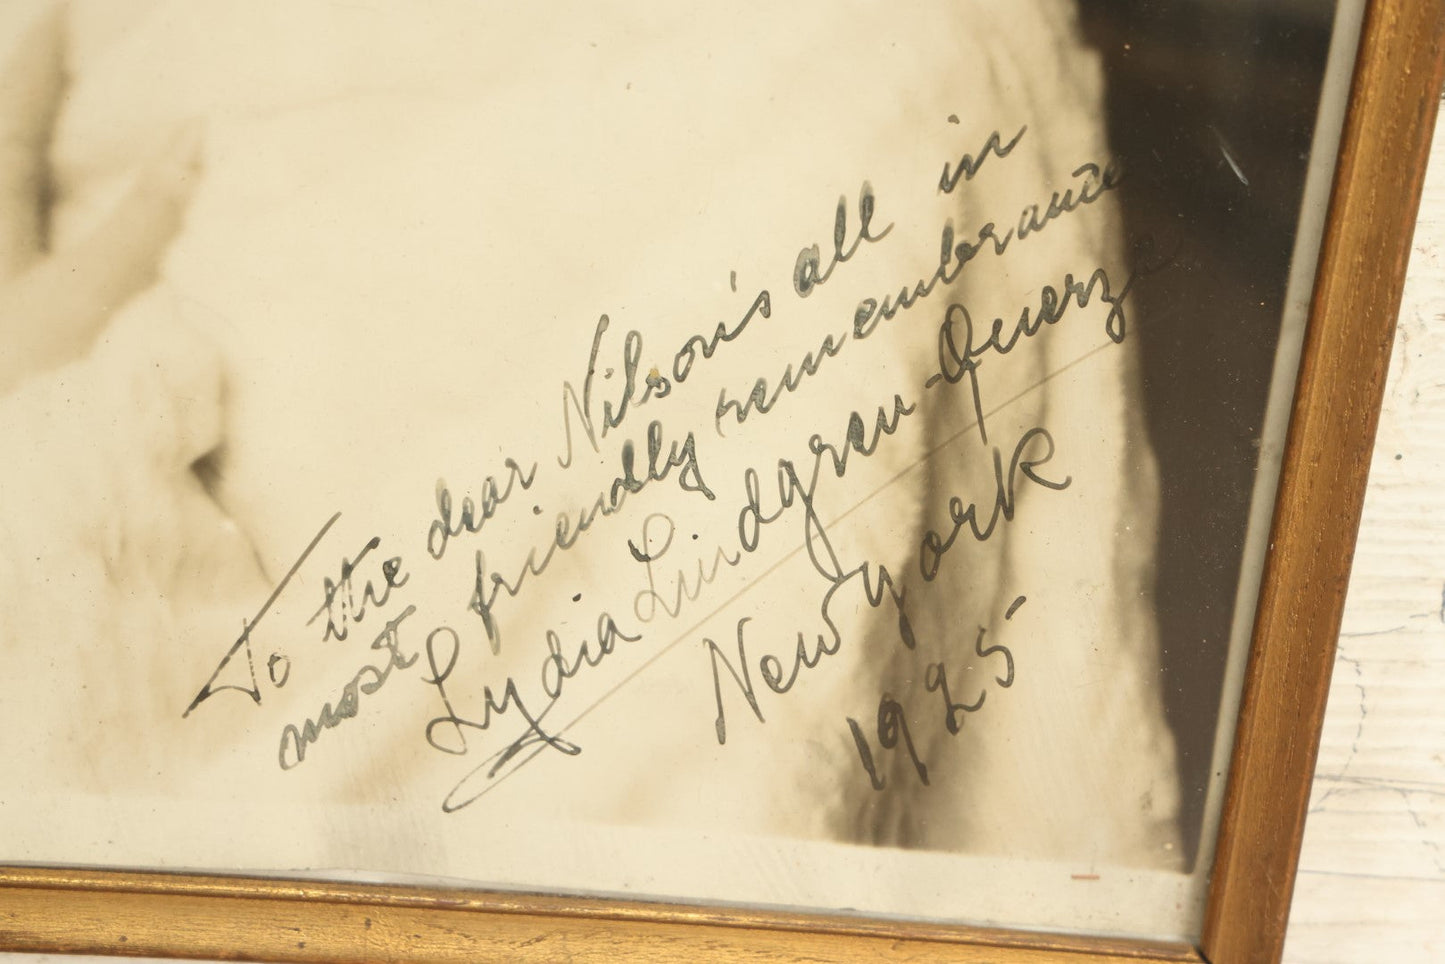 To the dear Nilson's all in
most friendly remembrance
Lydia Lindgren-Querze
New York
1925